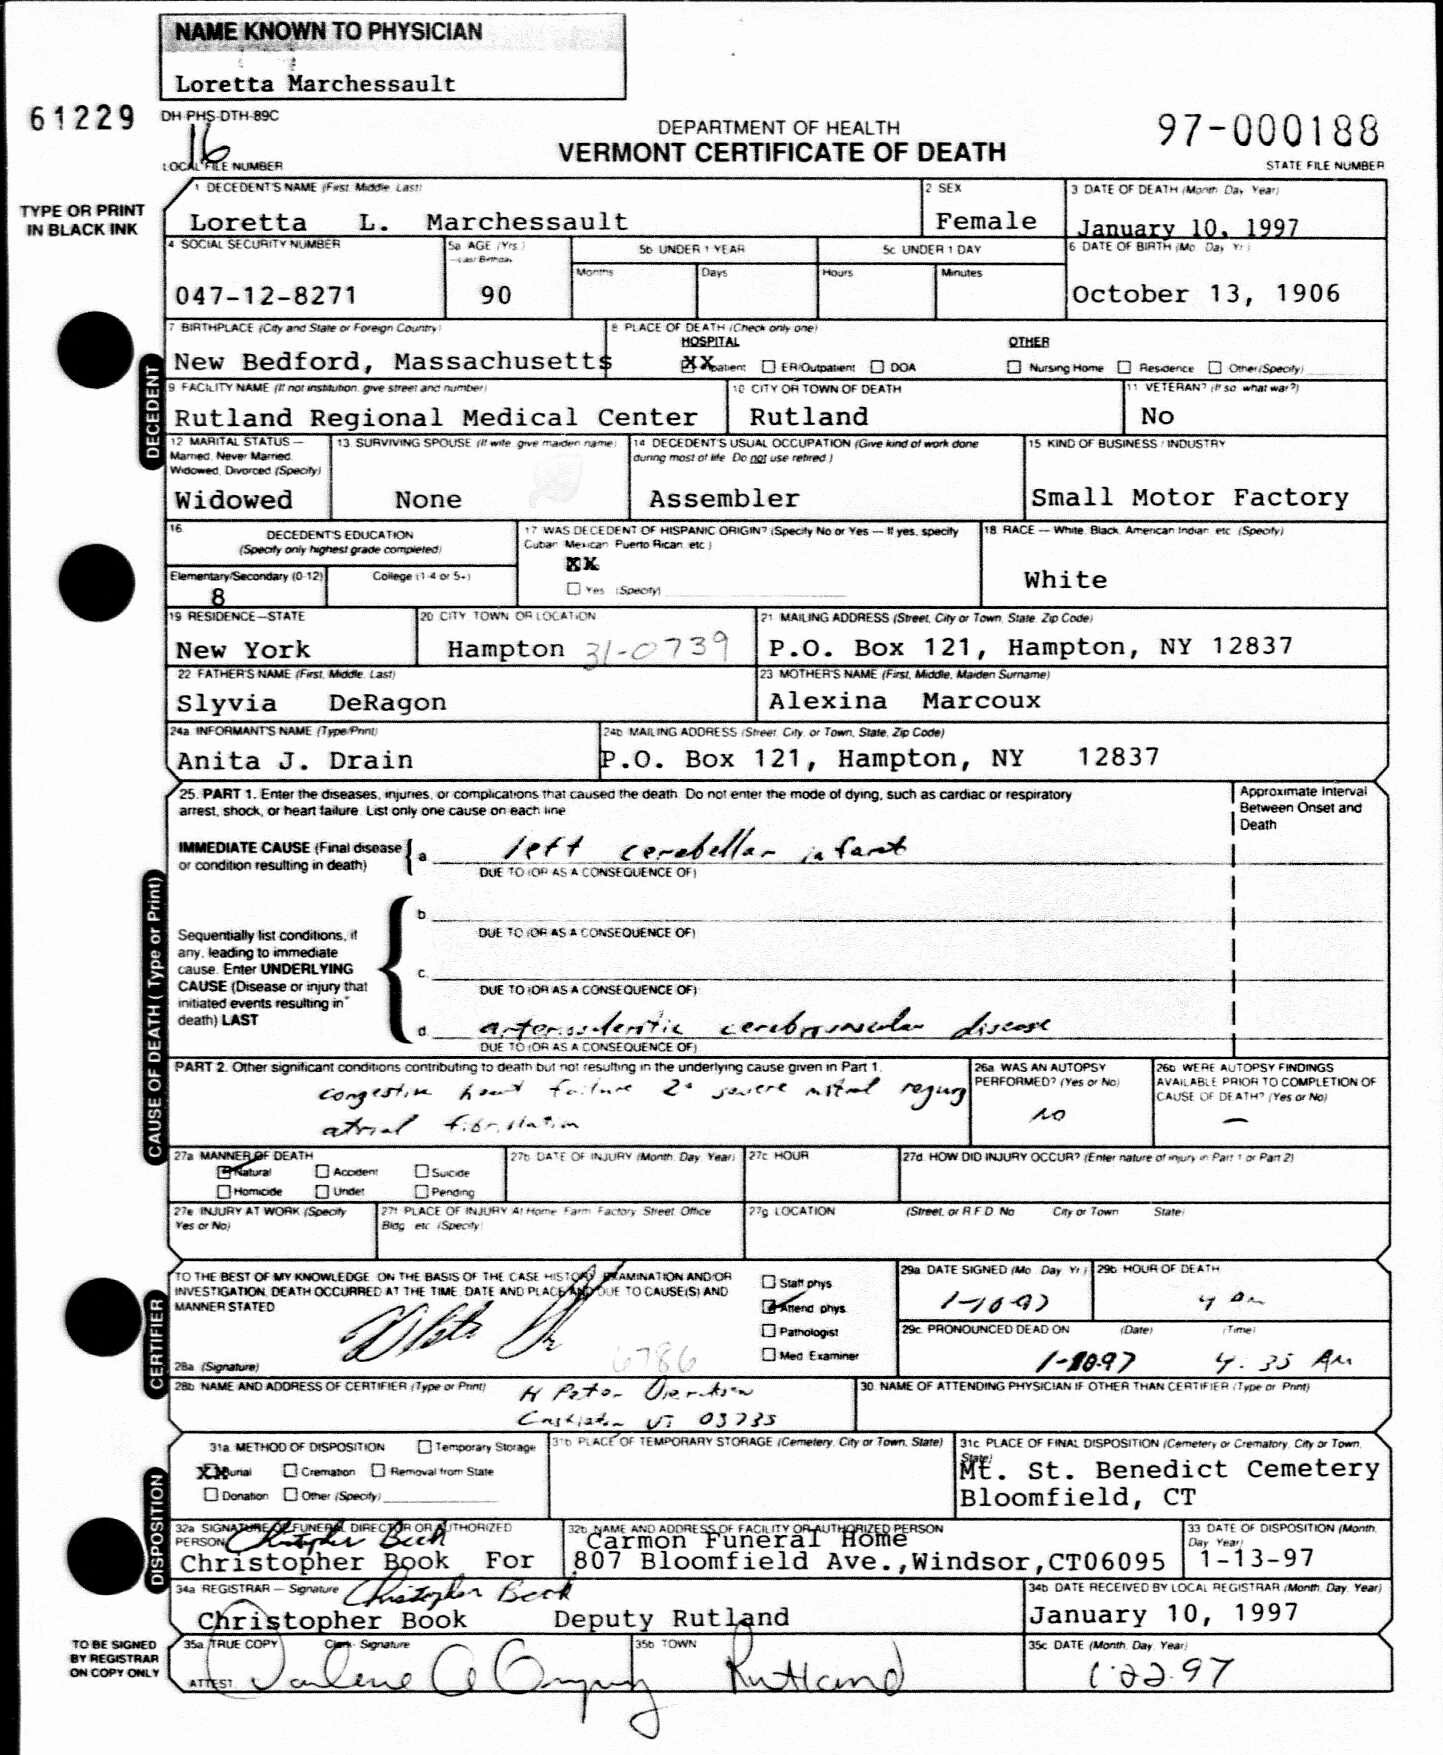 NAME KNOWN TO PHYSICIAN
Loretta Marchessault
61229
DH-PHS-DTH-89C
16
LOCAL FILE NUMBER
DEPARTMENT OF HEALTH
VERMONT CERTIFICATE OF DEATH
97-000188
STATE FILE NUMBER
TYPE OR PRINT
IN BLACK INK
DECEDENT
1 DECEDENT'S NAME (First, Middle, Last)
Loretta L. Marchessault
2 SEX
Female
3 DATE OF DEATH (Month, Day, Year)
January 10, 1997
4 SOCIAL SECURITY NUMBER
047-12-8271
5a AGE (Yrs.)
—Last Birthday
90
5b UNDER 1 YEAR
Months
Days
5c UNDER 1 DAY
Hours
Minutes
6 DATE OF BIRTH (Mo. Day, Yr.)
October 13, 1906
7 BIRTHPLACE (City and State or Foreign Country)
New Bedford, Massachusetts
8 PLACE OF DEATH (Check only one)
HOSPITAL
XX patient
ER/Outpatient
DOA
OTHER
Nursing Home
Residence
Other (Specify)
9 FACILITY NAME (If not institution, give street and number)
Rutland Regional Medical Center
10 CITY OR TOWN OF DEATH
Rutland
11 VETERAN? (If so, what war?)
No
12 MARITAL STATUS —
Married, Never Married,
Widowed, Divorced (Specify)
Widowed
13 SURVIVING SPOUSE (If wife, give maiden name)
None
14 DECEDENT'S USUAL OCCUPATION (Give kind of work done
during most of life. Do not use retired.)
Assembler
15 KIND OF BUSINESS / INDUSTRY
Small Motor Factory
16
DECEDENT'S EDUCATION
(Specify only highest grade completed)
Elementary/Secondary (0-12)
8
College (1-4 or 5+)
17 WAS DECEDENT OF HISPANIC ORIGIN? (Specify No or Yes — If yes, specify
Cuban, Mexican, Puerto Rican, etc.)
XX
Yes (Specify)
18 RACE — White, Black, American Indian, etc. (Specify)
White
19 RESIDENCE—STATE
New York
20 CITY, TOWN, OR LOCATION
Hampton 31-0739
21 MAILING ADDRESS (Street, City or Town, State, Zip Code)
P.O. Box 121, Hampton, NY 12837
22 FATHER'S NAME (First, Middle, Last)
Slyvia DeRagon
23 MOTHER'S NAME (First, Middle, Maiden Surname)
Alexina Marcoux
24a INFORMANT'S NAME (Type/Print)
Anita J. Drain
24b MAILING ADDRESS (Street, City, or Town, State, Zip Code)
P.O. Box 121, Hampton, NY 12837
CAUSE OF DEATH (Type or Print)
25. PART 1. Enter the diseases, injuries, or complications that caused the death. Do not enter the mode of dying, such as cardiac or respiratory
arrest, shock, or heart failure. List only one cause on each line
Approximate Interval
Between Onset and
Death
IMMEDIATE CAUSE (Final disease
or condition resulting in death)
a. left cerebellar infarct
DUE TO (OR AS A CONSEQUENCE OF)
b.
DUE TO (OR AS A CONSEQUENCE OF)
Sequentially list conditions, if
any, leading to immediate
cause. Enter UNDERLYING
CAUSE (Disease or injury that
initiated events resulting in
death) LAST
c.
DUE TO (OR AS A CONSEQUENCE OF)
d. arteriosclerotic cerebrovascular disease
DUE TO (OR AS A CONSEQUENCE OF)
PART 2. Other significant conditions contributing to death but not resulting in the underlying cause given in Part 1.
congestive heart failure 2° severe mitral regurg
atrial fibrillation
26a WAS AN AUTOPSY
PERFORMED? (Yes or No)
no
26b WERE AUTOPSY FINDINGS
AVAILABLE PRIOR TO COMPLETION OF
CAUSE OF DEATH? (Yes or No)
—
27a MANNER OF DEATH
Natural
Accident
Suicide
Homicide
Undet
Pending
27b DATE OF INJURY (Month, Day, Year)
27c HOUR
27d. HOW DID INJURY OCCUR? (Enter nature of injury in Part 1 or Part 2)
27e INJURY AT WORK (Specify
Yes or No)
27f PLACE OF INJURY At Home, Farm, Factory, Street, Office
Bldg. etc. (Specify)
27g LOCATION
(Street, or R.F.D. No.
City or Town
State)
CERTIFIER
TO THE BEST OF MY KNOWLEDGE, ON THE BASIS OF THE CASE HISTORY, EXAMINATION AND/OR
INVESTIGATION, DEATH OCCURRED AT THE TIME, DATE AND PLACE AND DUE TO CAUSE(S) AND
MANNER STATED
6786
28a (Signature)
Staff phys
Attend phys
Pathologist
Med. Examiner
29a DATE SIGNED (Mo. Day Yr.)
1-10-97
29b HOUR OF DEATH
4 am
29c PRONOUNCED DEAD ON (Date) (Time)
1-10-97 4:35 AM
28b NAME AND ADDRESS OF CERTIFIER (Type or Print)
H Peter
Castleton VT 05735
30 NAME OF ATTENDING PHYSICIAN IF OTHER THAN CERTIFIER (Type or Print)
DISPOSITION
31a METHOD OF DISPOSITION
Temporary Storage
XX Burial
Cremation
Removal from State
Donation
Other (Specify)
31b PLACE OF TEMPORARY STORAGE (Cemetery, City or Town, State)
31c PLACE OF FINAL DISPOSITION (Cemetery or Crematory, City or Town,
State)
Mt. St. Benedict Cemetery
Bloomfield, CT
32a SIGNATURE OF FUNERAL DIRECTOR OR AUTHORIZED
PERSON Christopher Book
Christopher Book For
32b NAME AND ADDRESS OF FACILITY OR AUTHORIZED PERSON
Carmon Funeral Home
807 Bloomfield Ave.,Windsor,CT06095
33 DATE OF DISPOSITION (Month,
Day, Year)
1-13-97
34a REGISTRAR — Signature Christopher Book
Christopher Book Deputy Rutland
34b DATE RECEIVED BY LOCAL REGISTRAR (Month, Day, Year)
January 10, 1997
TO BE SIGNED
BY REGISTRAR
ON COPY ONLY
35a TRUE COPY Clerk Signature
ATTEST
35b TOWN
Rutland
35c DATE (Month, Day, Year)
1-22-97